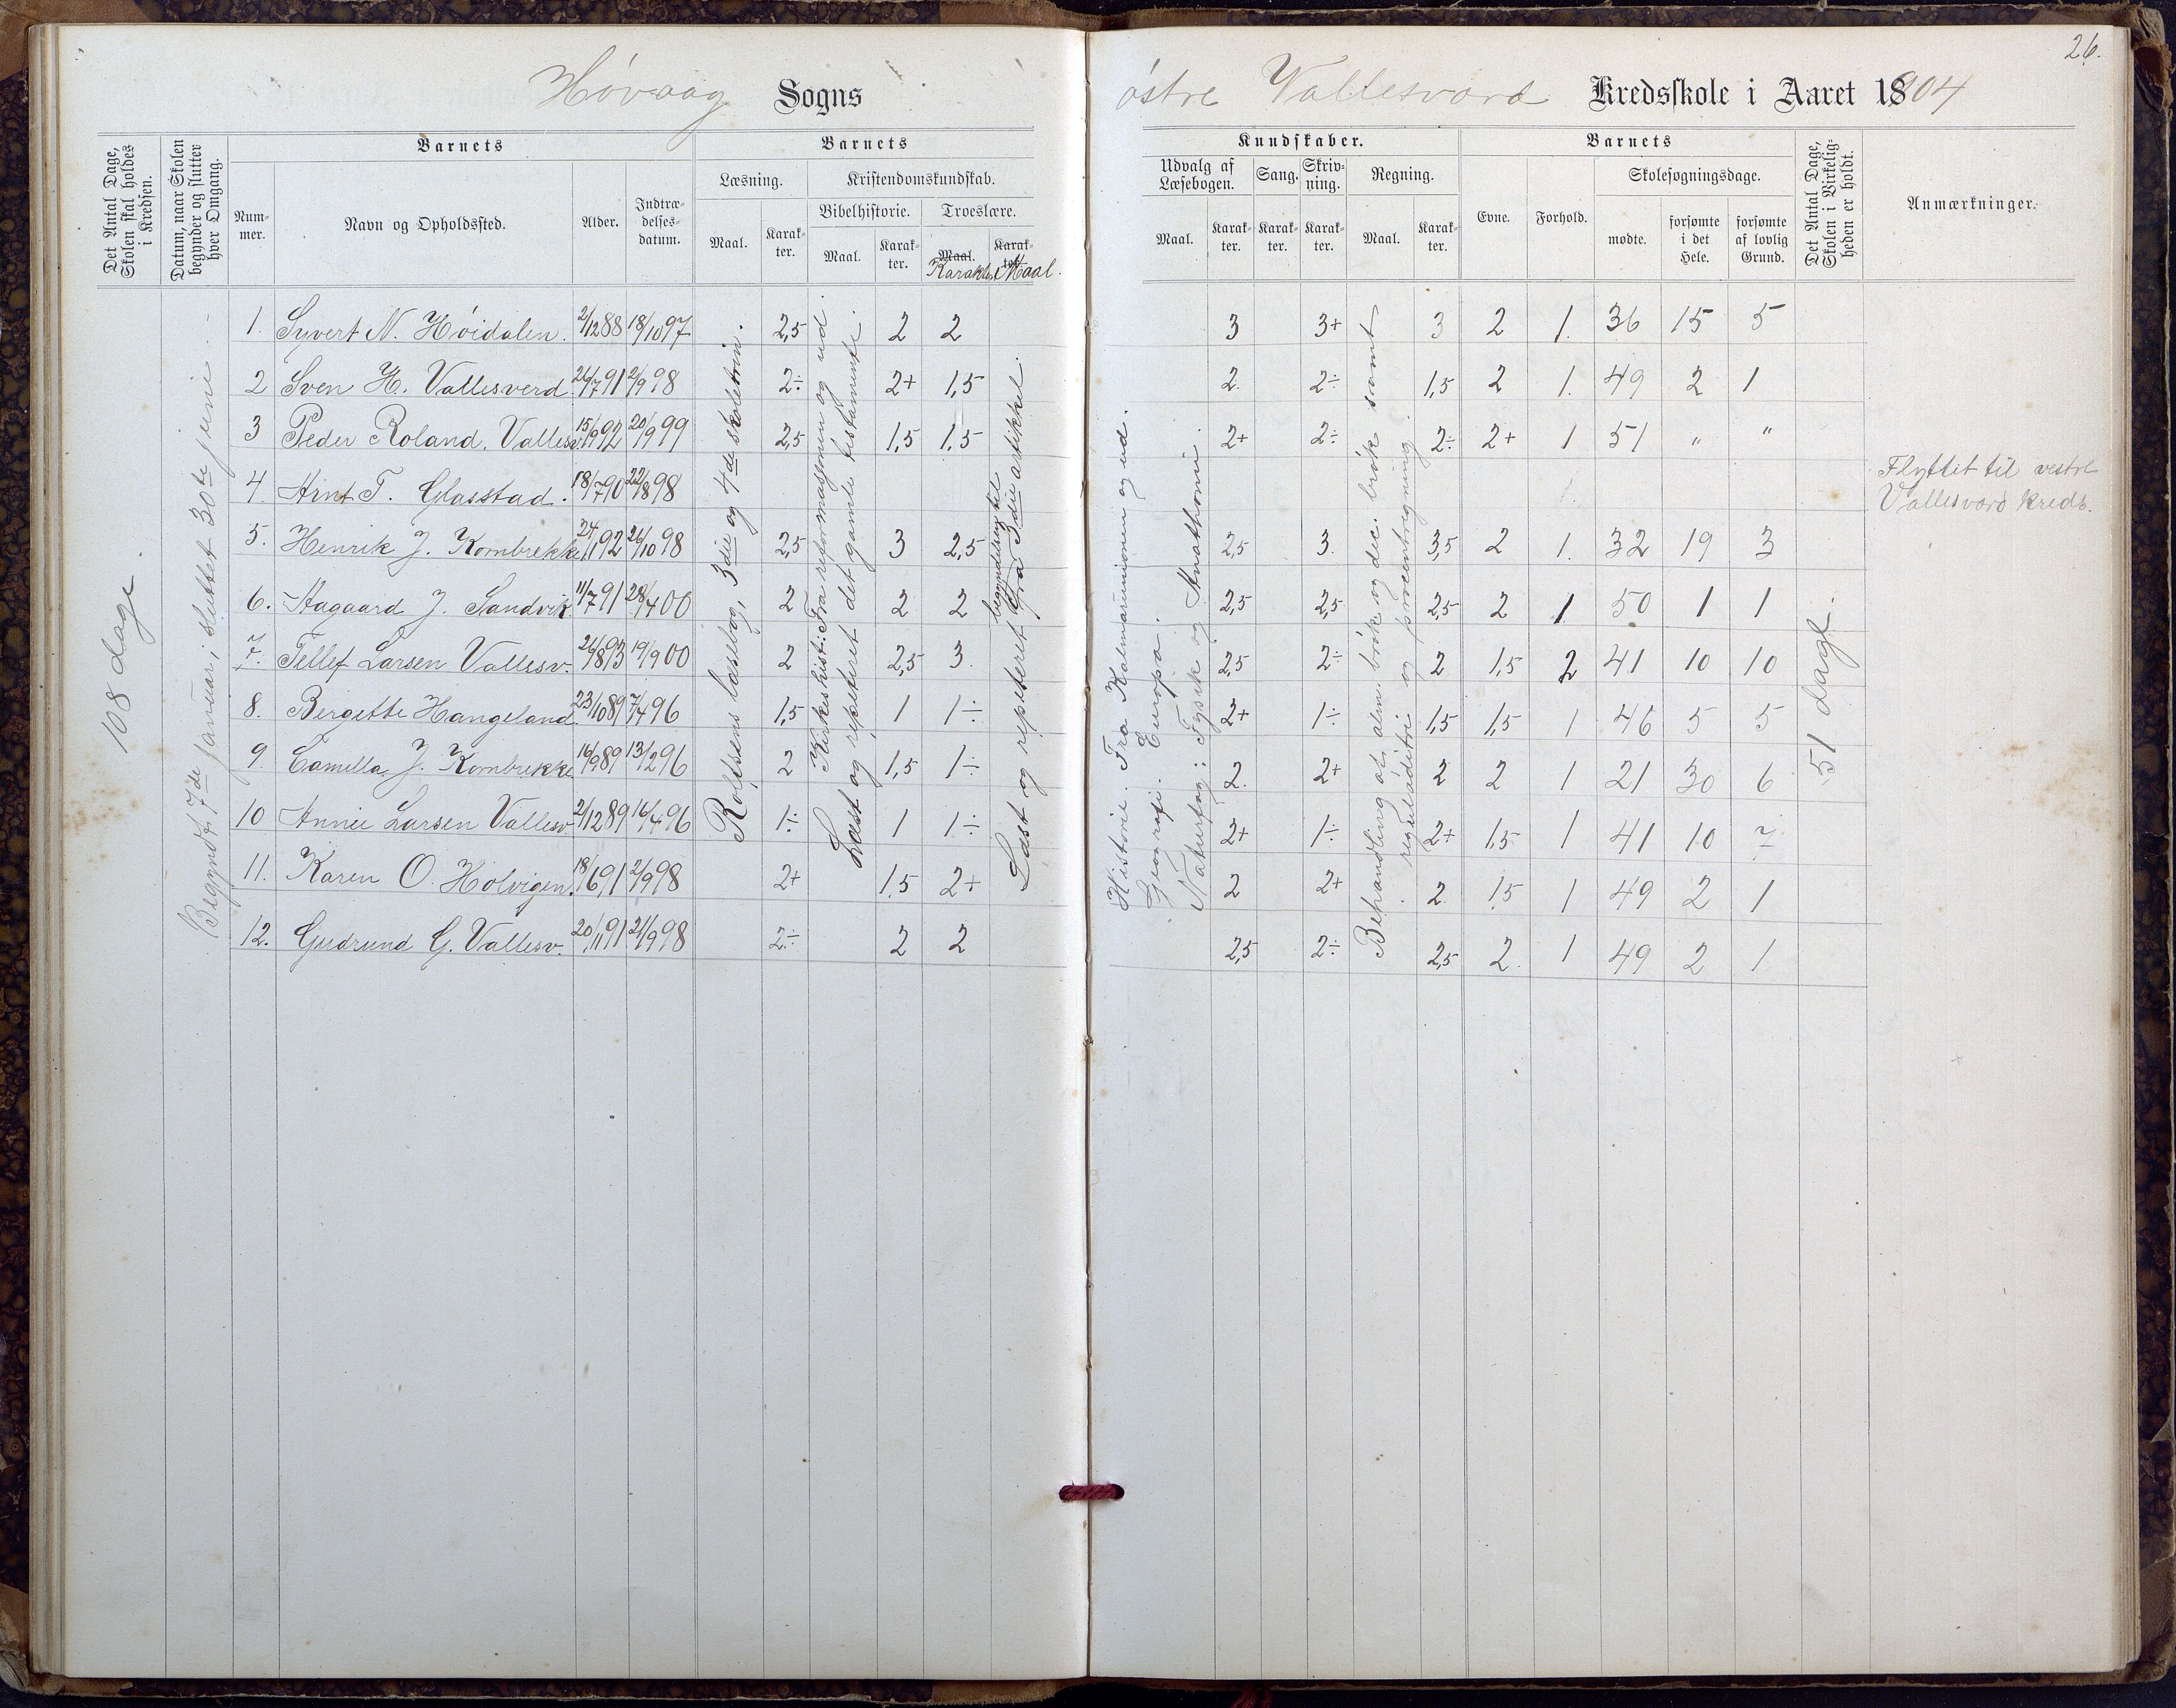 26.
Høvaag Sogns
østre Vallesverd Kredsskole i Aaret 1904
Det Antal Dage, Skolen skal holdes i Kredsen.
Datum, naar Skolen begynder og slutter hver Omgang.
Barnets
Nummer.
Navn og Opholdssted.
Alder.
Indtrædelsesdatum.
Barnets
Læsning.
Kristendomskundskab.
Maal.
Karakter.
Bibelhistorie.
Troeslære.
Maal.
Karakter.
Maal. Karakter
Karakter Maal.
Kundskaber.
Udvalg af Læsebogen.
Sang.
Skrivning.
Regning.
Maal.
Karakter.
Karakter.
Karakter.
Maal.
Karakter.
Barnets
Evne.
Forhold.
Skolesøgningsdage.
mødte.
forsømte i det Hele.
forsømte af lovlig Grund.
Det Antal Dage, Skolen i Virkeligheden er holdt.
Anmærkninger.
108 dage.
Begyndt 7de januar, sluttet 30te juni.
Rolfsens læsebog, 3die og 4de skoletrin.
Kirkeshist: Fra reformasjonen og ud.
Læst og repeteret det gamle testamente.
begyndelsen til
Læst og repeteret fra 3die artikkel.
Historie. Fra Kalmarunionen og ud.
Geografi. Europa.
Naturfag: Fysik og Anathomi.
Behandling af alm. brøk og dec. brøk samt
reguladetri og procentregning.
51 dage.
1. Syvert N. Høidalen. 2/12 88 18/10 97 2,5 2 2 3 3+ 3 2 1. 36 15 5
2 Sven H. Vallesverd 26/7 91 2/9 98 2÷ 2+ 1,5 2. 2÷ 1,5 2 1. 49 2 1
3 Peder Roland. Vallesv. 15/9 92 20/9 99 2,5 1,5 1,5 2+ 2÷ 2÷ 2+ 1 51 " "
4. Arnt T. Glasstad. 18/7 90 22/8 98 Flyttet til vestre
Vallesverd kreds.
5. Henrik J. Kornbrekke 24/1 92 26/10 98 2,5 3 2,5 2,5 3. 3,5 2 1. 32 19 3
6. Aagaard J. Sandvik 11/7 91 28/4 00 2 2 2 2,5 2,5 2,5 2 1 50 1 1
7. Tellef Larsen Vallesv. 26/8 93 19/9 00 2 2,5 3. 2,5 2÷ 2 1,5 2 41 10 10
8. Bergette Hangeland 23/10 89 7/4 96 1,5 1 1÷ 2+ 1÷ 1,5 1,5 1 46 5 5
9. Camilla J. Kornbrekke 16/9 89 13/2 96 2 1,5 1÷ 2. 2+ 2 2 1 21 30 6
10 Annie Larsen Vallesv. 2/12 89 16/4 96 1÷ 1 1÷ 2+ 1÷ 2+ 1,5 1 41 10 7
11. Karen O. Holvigen. 18/6 91 2/9 98 2+ 1,5 2+ 2 2+ 2 1,5 1 49 2 1
12. Gudrund G. Vallesv. 20/11 91 21/9 98 2÷ 2 2 2,5 2÷ 2,5 2 1 49 2 1